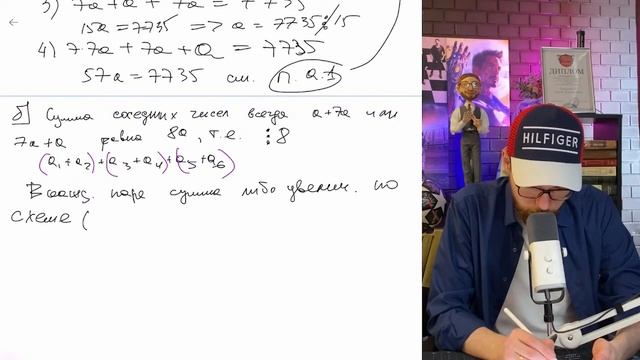 3) 7a + a + 7a = 7735
15a = 7735 => a = 7735 : 15
4) 7·7a + 7a + a = 7735
57a = 7735 см. п. а.1
б) Сумма соседних чисел всегда a+7a или
7a+a равна 8a, т.е. ⋮8
(a1+a2)+(a3+a4)+(a5+a6)
В кажд. паре сумма либо увелич. по
схеме (
ДИПЛОМ
HILFIGER